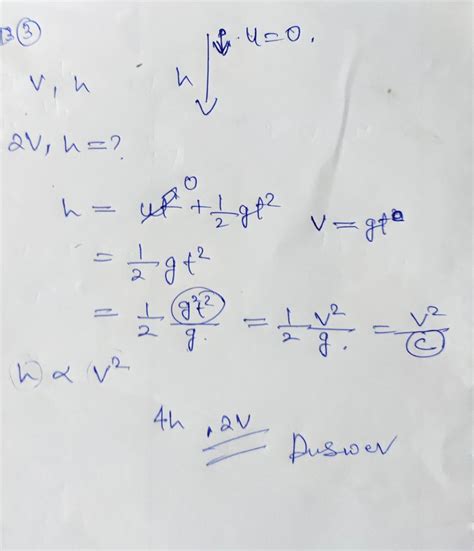 ③
u=0.
v, h
h
2V, h=?
h = ut⁰ + 1/2 gt²
V = gt
= 1/2 gt²
= 1/2 g²t²/g. = 1/2 V²/g. = V²/C
h ∝ V²
4h, 2V
Answer